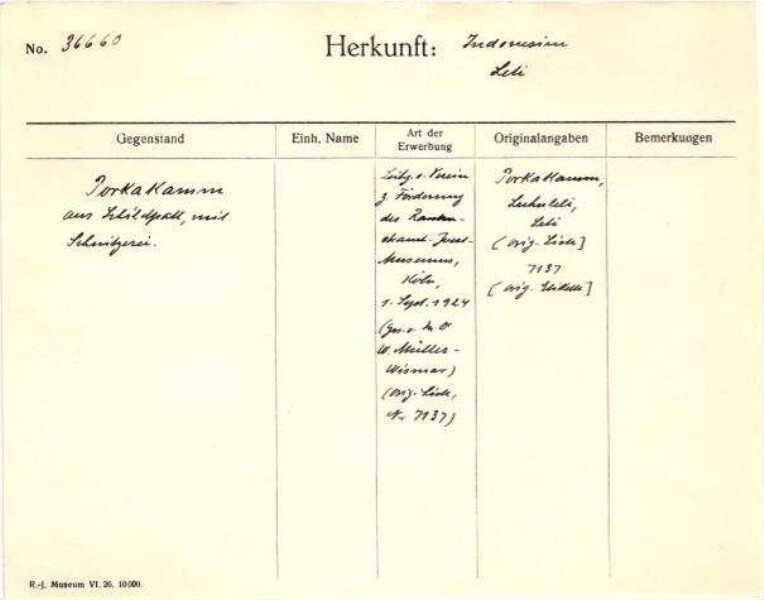 No. 36660
Herkunft: Indonesien
Leti
Gegenstand
Einh. Name
Art der
Erwerbung
Originalangaben
Bemerkungen
Porkakamm
aus Schildpatt, mit
Schnitzerei.
Leihg. v. Verein
z. Förderung
des Rauten-
strauch-Joest-
Museums,
Köln,
1. Sept. 1924
(ges. v.
W. Müller-
Wismar)
(orig. Liste,
Nr. 7137)
Porkakamm,
Luhuleli,
Leti
(orig. Liste]
7137
(orig. Etikette]
R.-J. Museum VI. 26. 10000.